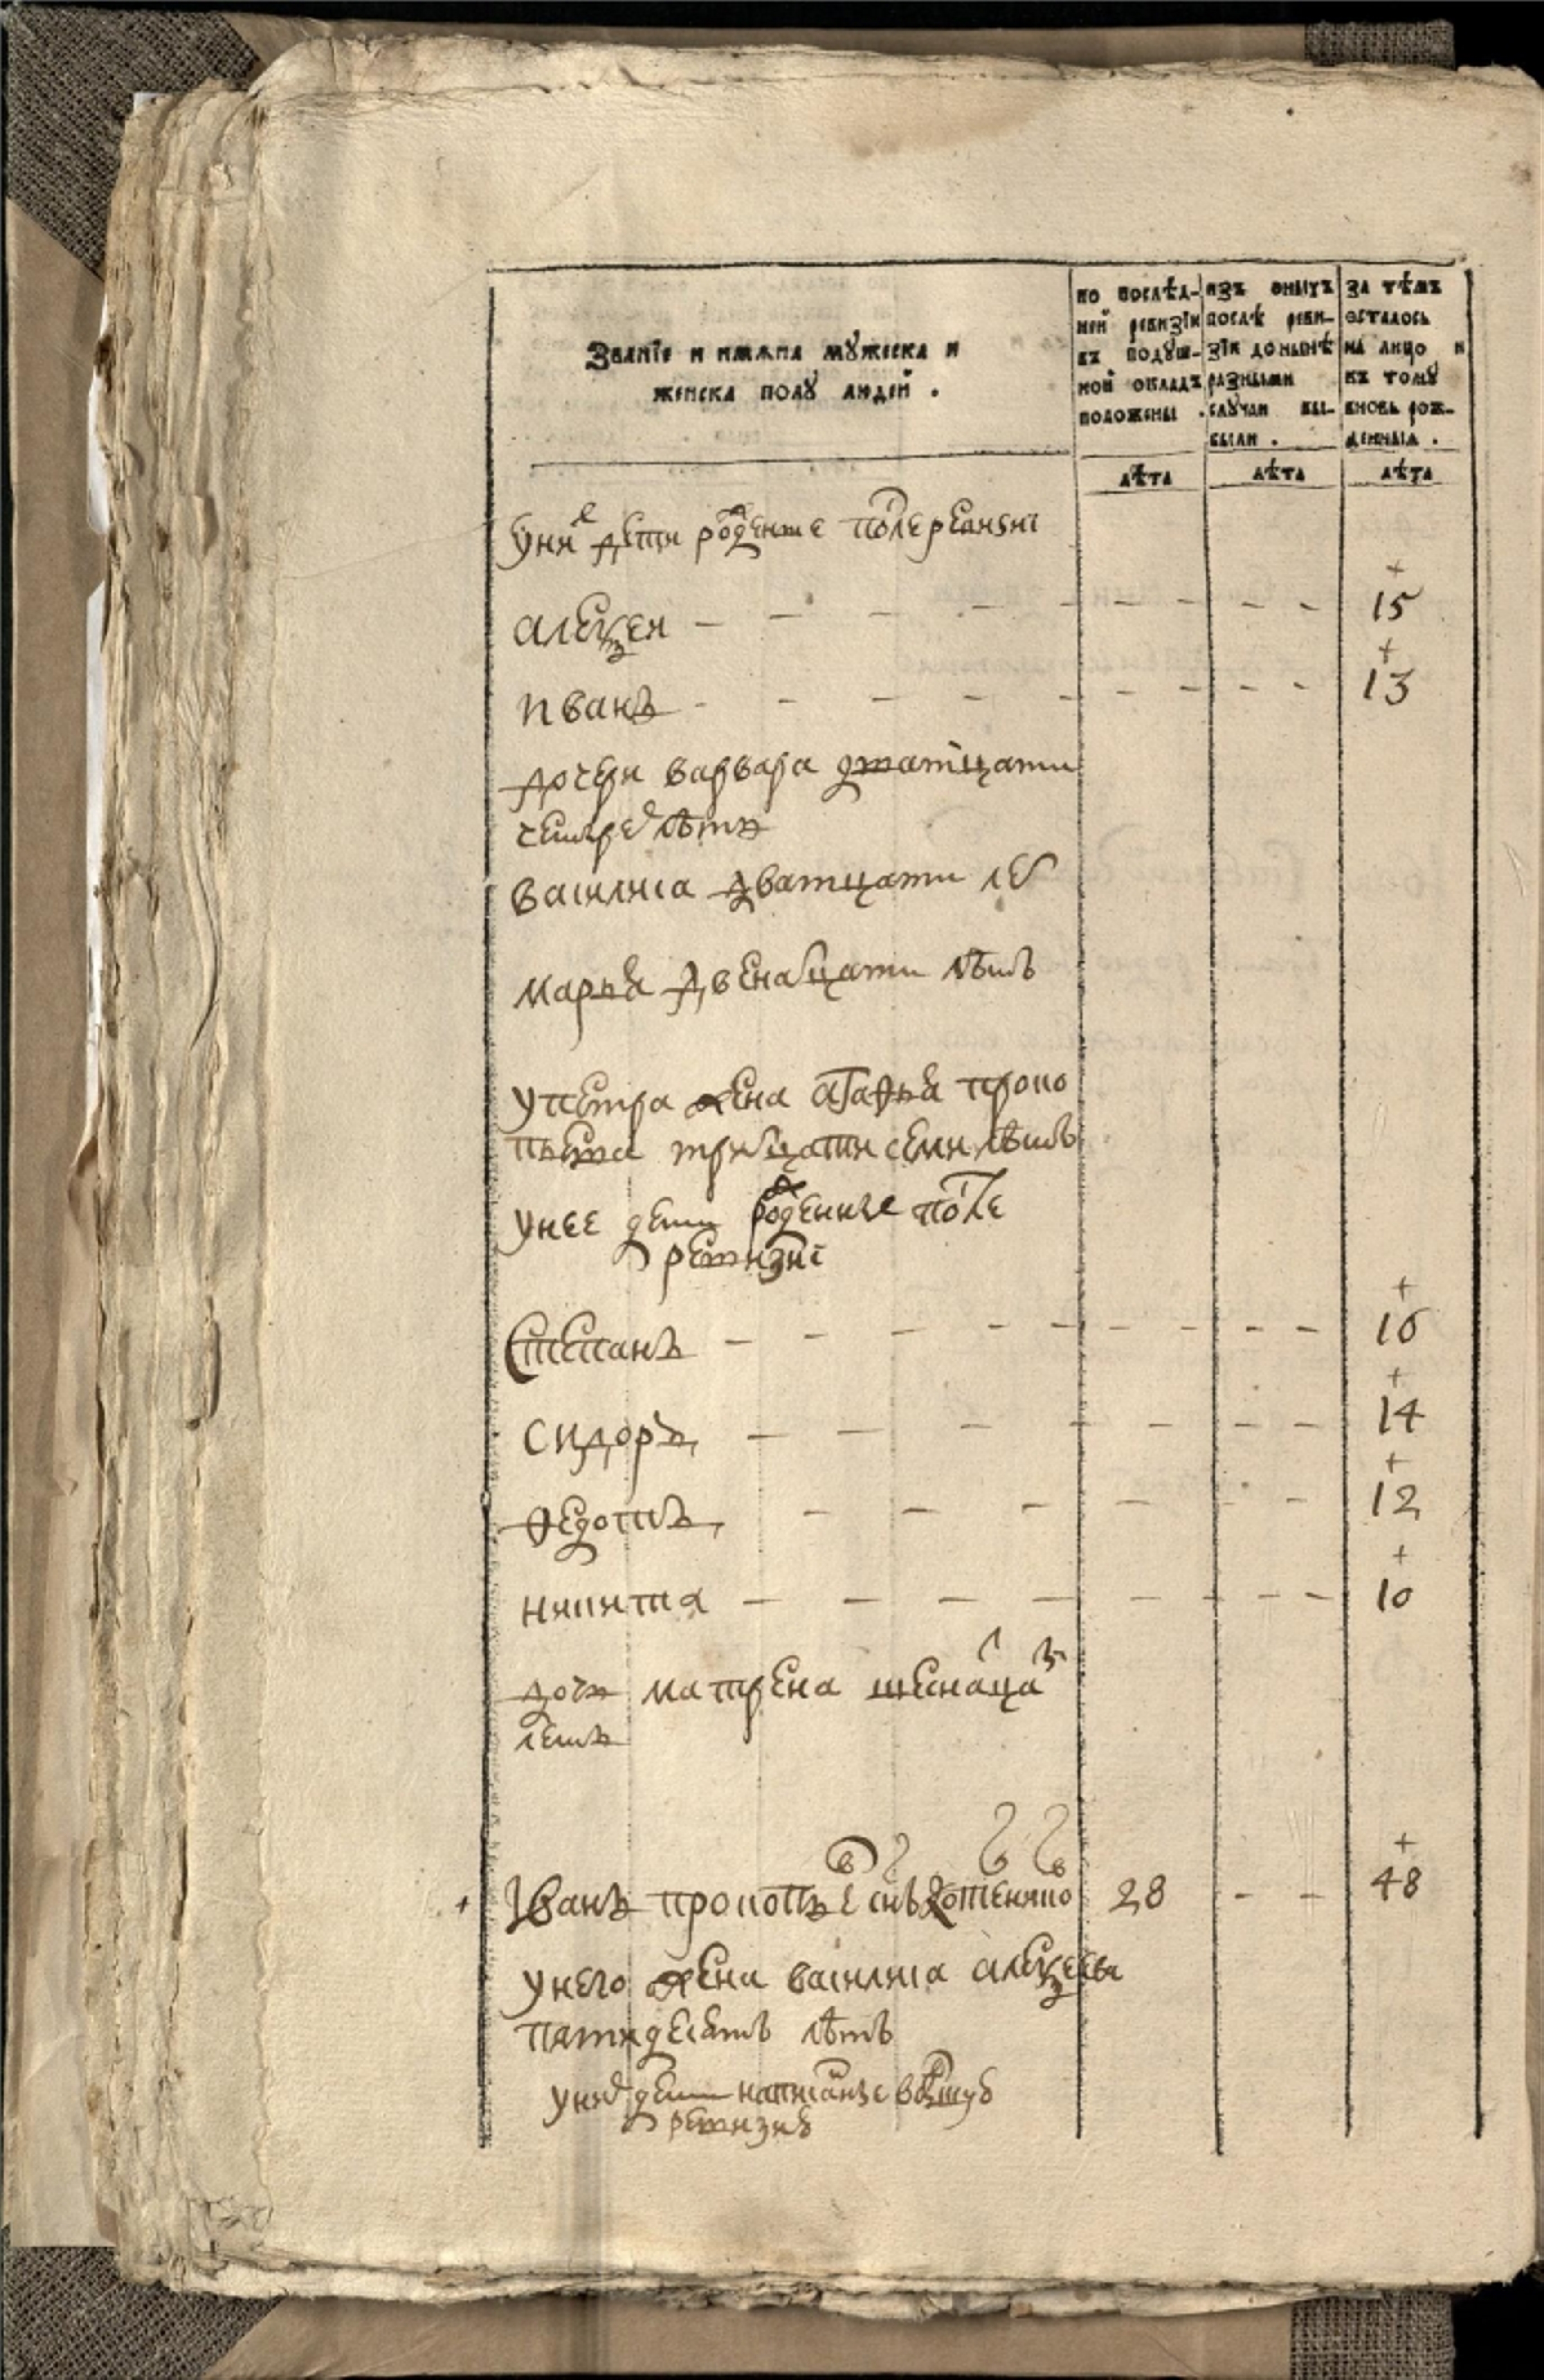 Званїе и имѧна мꙋжеска и
женска полꙋ людей .
по послѣд-
ней ревизїи
въ подꙋш-
ной окладъ
положены .
изъ оныхъ
послѣ реви-
зїи донынѣ
разными
слꙋчаи вы-
были .
за тѣмъ
осталось
на лицо и
къ томꙋ
вновь рож-
денныѧ .
лѣта лѣта лѣта
у них дети рожденые после ревизиі
алексеи - - - 15
иванъ - - - 13
дочери варвара дватцати
четырех лѣтъ
василиса дватцати лет
марья двенатцати лѣтъ
у петра жена агафья проко
пьева тритцати семи лѣтъ
у нее дети рожденные после
ревизиі
Степанъ - - - 16
сидоръ - - - 14
федотъ - - - 12
никита - - - 10
дочь матрена шеснатцати
летъ
Иванъ прокопьевъ снъ 28 - - 48
у него жена василиса алексеева
пятидесятъ лѣтъ
у них дети написанные в
ревизию